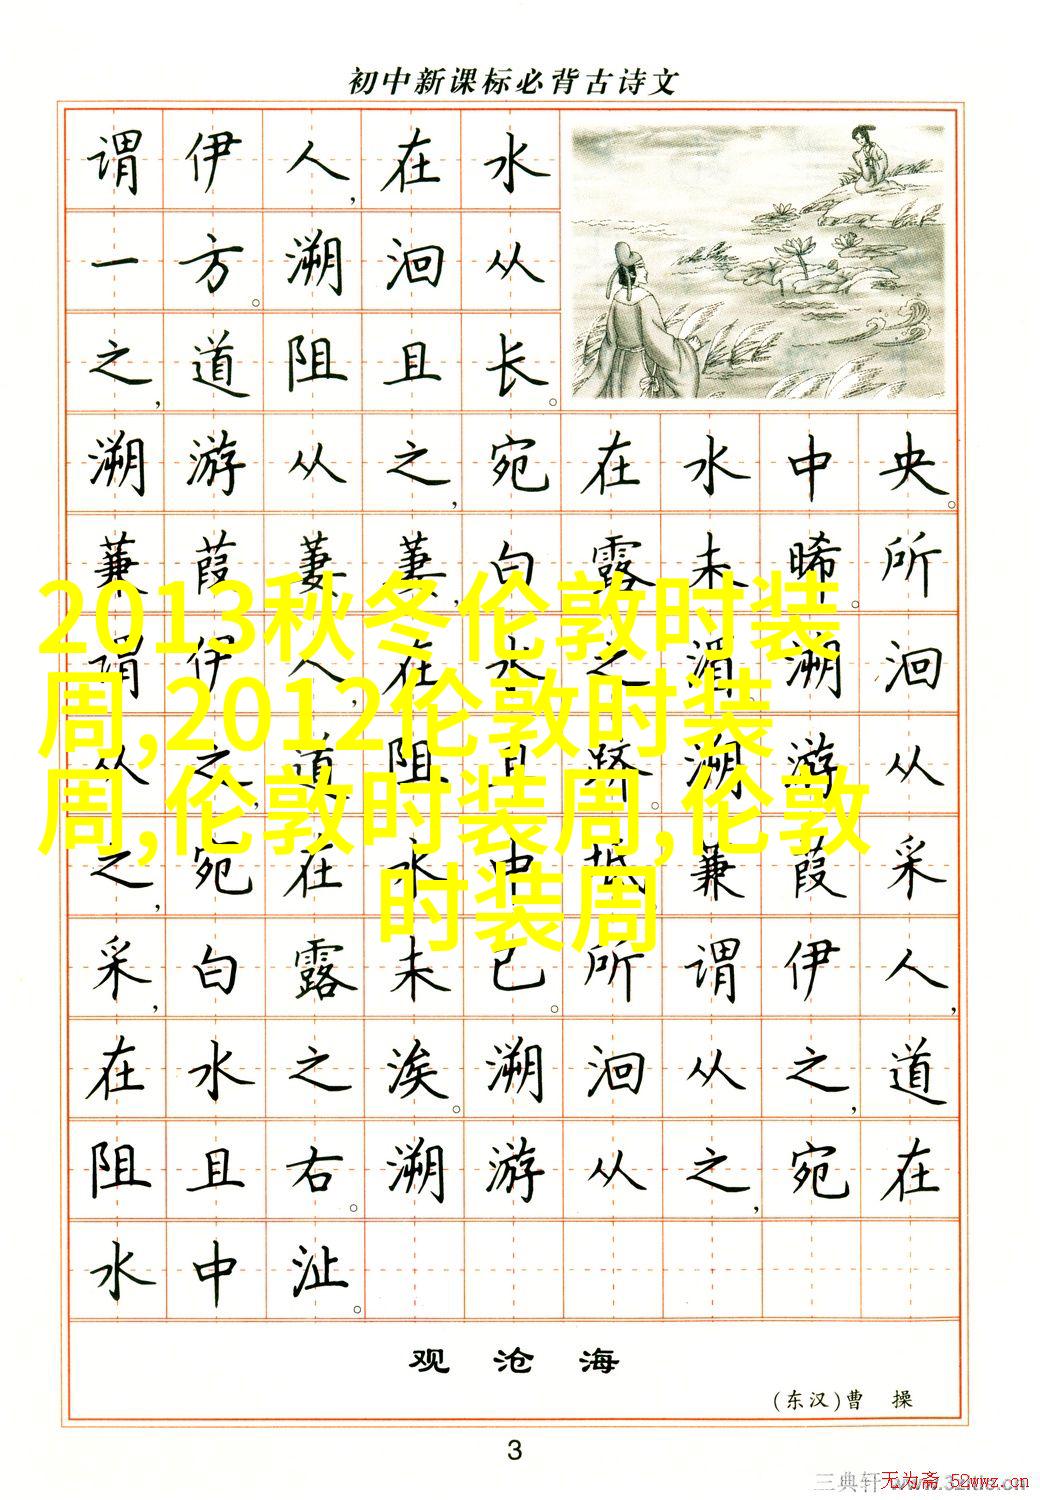 初中新课标必背古诗文
谓伊人,在水
一方。溯洄从
之,道阻且长。
溯游从之,宛在水中央。
蒹葭萋萋,白露未晞。所
谓伊人,在水之湄。溯洄
从之,道阻且跻。溯游从
之,宛在水中坻。蒹葭采
采,白露未已。所谓伊人,
在水之涘。溯洄从之,道
阻且右。溯游从之,宛在
水中沚。
2013秋冬伦敦时装
周,2012伦敦时装
周,伦敦时装周,伦敦
时装周
观沧海
(东汉)曹 操
3
三典轩
无为斋 52wwz.cn